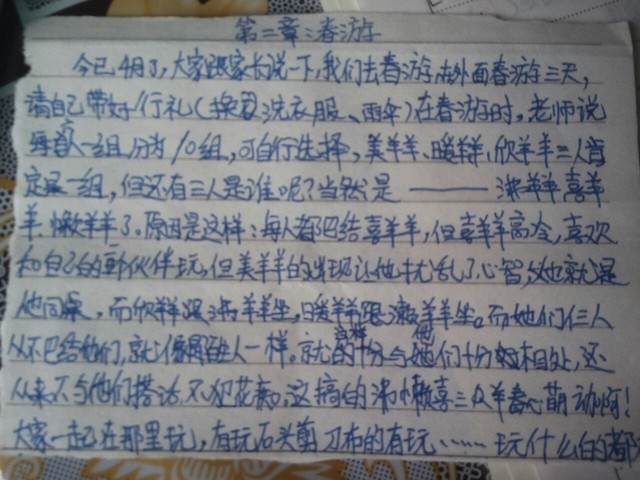 第二章:春游
今已4月了,大家跟家长说一下,我们去春游,去外面春游三天,
请自己带好行礼(换洗衣服、雨伞)在春游时,老师说
每六人一组,分为10组,可自行选择,美羊羊、暖羊羊、欣羊羊三人肯
定是一组,但还有三人是谁呢?当然是 —— 沸羊羊喜羊
羊、懒羊羊了。原因是这样:每人都巴结喜羊羊,但喜羊羊高冷,喜欢
和自己的新伙伴玩,但美羊羊的出现让他扰乱了心智,她也就是
他同桌,而欣羊羊跟沸羊羊坐,暖羊羊跟懒羊羊坐。而她们仨人
从不巴结他们,就像跟路人一样。就这样的十分与他们十分相处,还
从来不与他们搭话,不犯花痴。这搞的沸懒喜三只羊春心萌动啊!
大家一起在那里玩,有玩石头剪刀布的有玩……玩什么的都